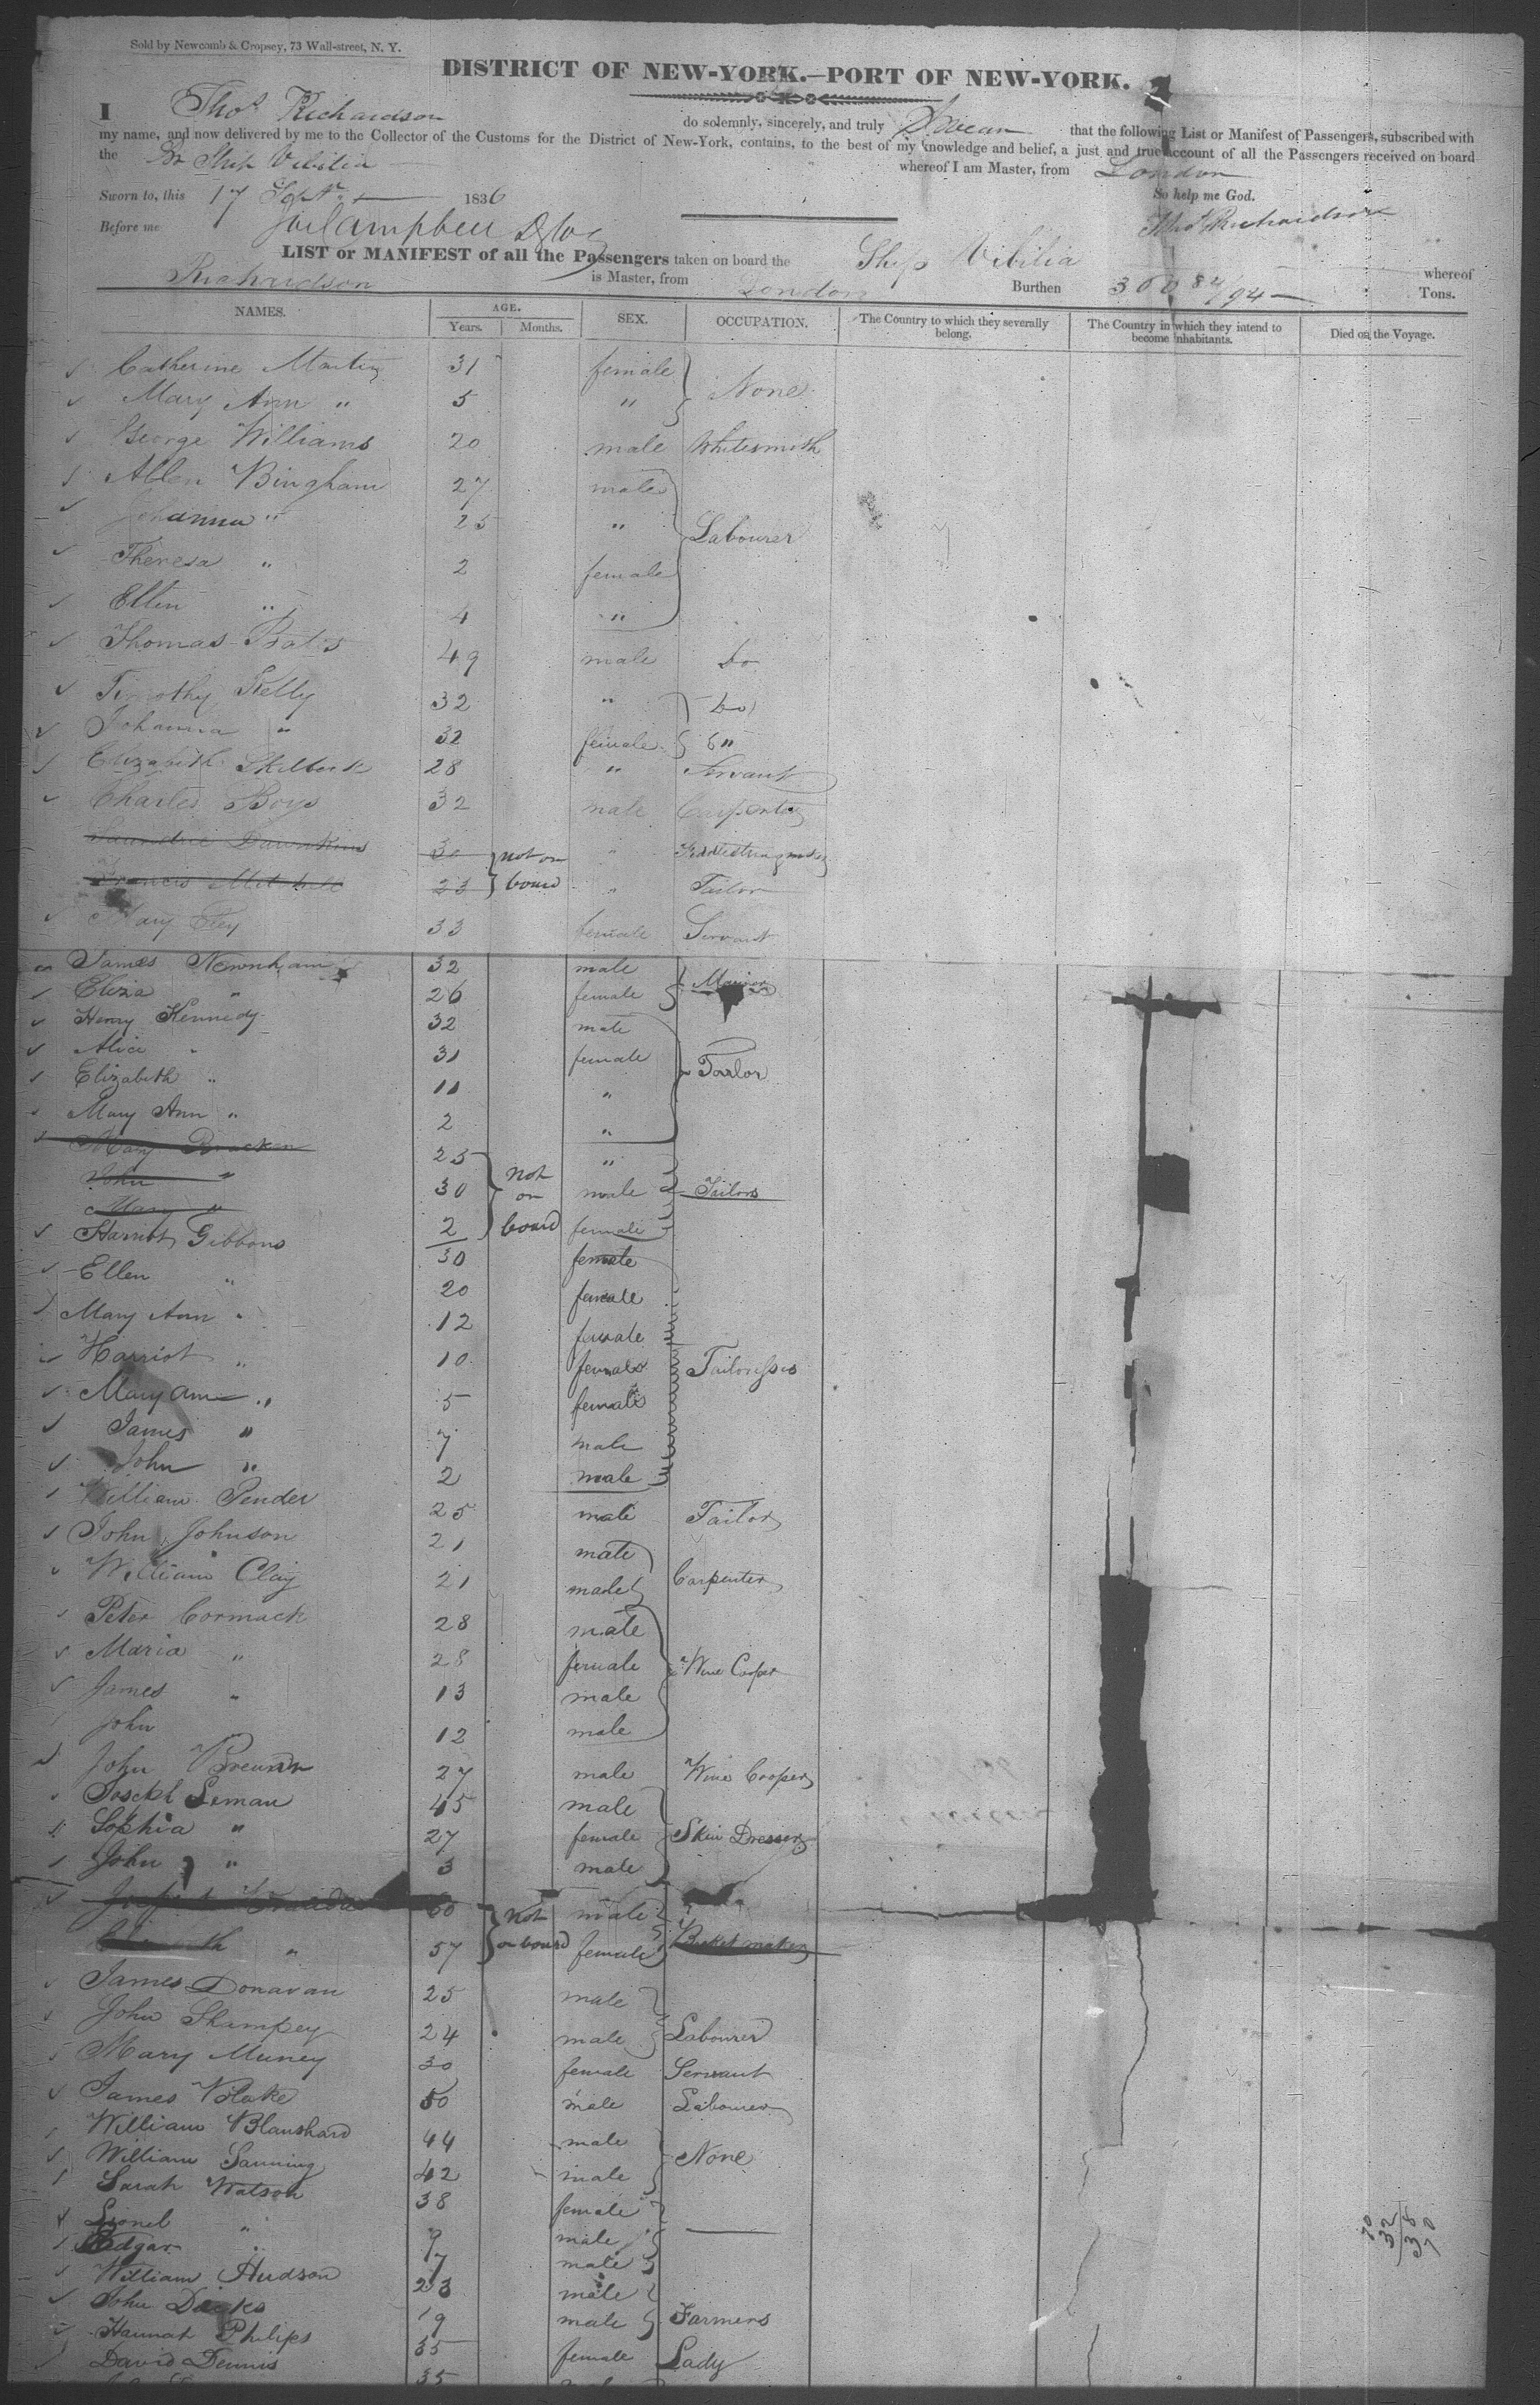 Sold by Newcomb & Cropsey, 73 Wall-street, N. Y.
DISTRICT OF NEW-YORK.—PORT OF NEW-YORK.
I Thos Richardson do solemnly, sincerely, and truly Swear that the following List or Manifest of Passengers, subscribed with
my name, and now delivered by me to the Collector of the Customs for the District of New-York, contains, to the best of my knowledge and belief, a just and true account of all the Passengers received on board
the Br Ship Vibilia whereof I am Master, from London
Sworn to, this 17 Sept. 1836 So help me God.
Before me Thos Richardson
LIST or MANIFEST of all the Passengers taken on board the Ship Vibilia whereof
Richardson is Master, from London Burthen 360 84/94 Tons.
NAMES. AGE. SEX. OCCUPATION. The Country to which they severally belong. The Country in which they intend to become inhabitants. Died on the Voyage.
Years. Months.
Catherine Martin 31 female None
Mary Ann " 5 "
George Williams 20 male Whitesmith
Allen Bingham 27 male
Johanna " 25 " Labourer
Theresa " 2 female
Ellen " 4 "
Thomas Bates 49 male Do
Timothy Kelly 32 " Do
Johanna " 32 female "
Elizabeth Skilbeck 28 " Servant
Charles Boys 32 male Carpenter
Dawnkins 30 not on "
Francis Mitchell 23 board " Tailor
Mary Eley 33 female Servant
James Newnham 32 male
Eliza " 26 female
Henry Kennedy 32 male
Alice " 31 female Tailor
Elizabeth " 11 "
Mary Ann " 2 "
Mary Bracken 25 not "
John " 30 on male Tailors
Mary " 2 board female
Harriot Gibbons 30 female
Ellen " 20 female
Mary Ann " 12 female
Harriot " 10 female Tailoresses
Mary Ann " 5 female
James " 7 male
John " 2 male
William Pender 25 male Tailor
John Johnson 21 male
William Clay 21 male Carpenter
Peter Cormack 28 male
Maria " 28 female Wine Cooper
James " 13 male
John 12 male
John 27 male Wine Cooper
Joseph Leman 45 male
Sophia " 27 female Skin Dresser
John " 3 male
Joseph 60 not male
" 57 on board female Basket maker
James Donavan 25 male
John Shampey 24 male Labourer
Mary Muney 30 female Servant
James Blake 50 male Labourer
William Blanshard 44 male None
William Sanning 42 male
Sarah Watson 38 female
Lionel " 9 male
Edgar " 7 male
William Hudson 23 male
John Dacks 19 male Farmers
Hannah Philips 35 female Lady
David Dennis 35